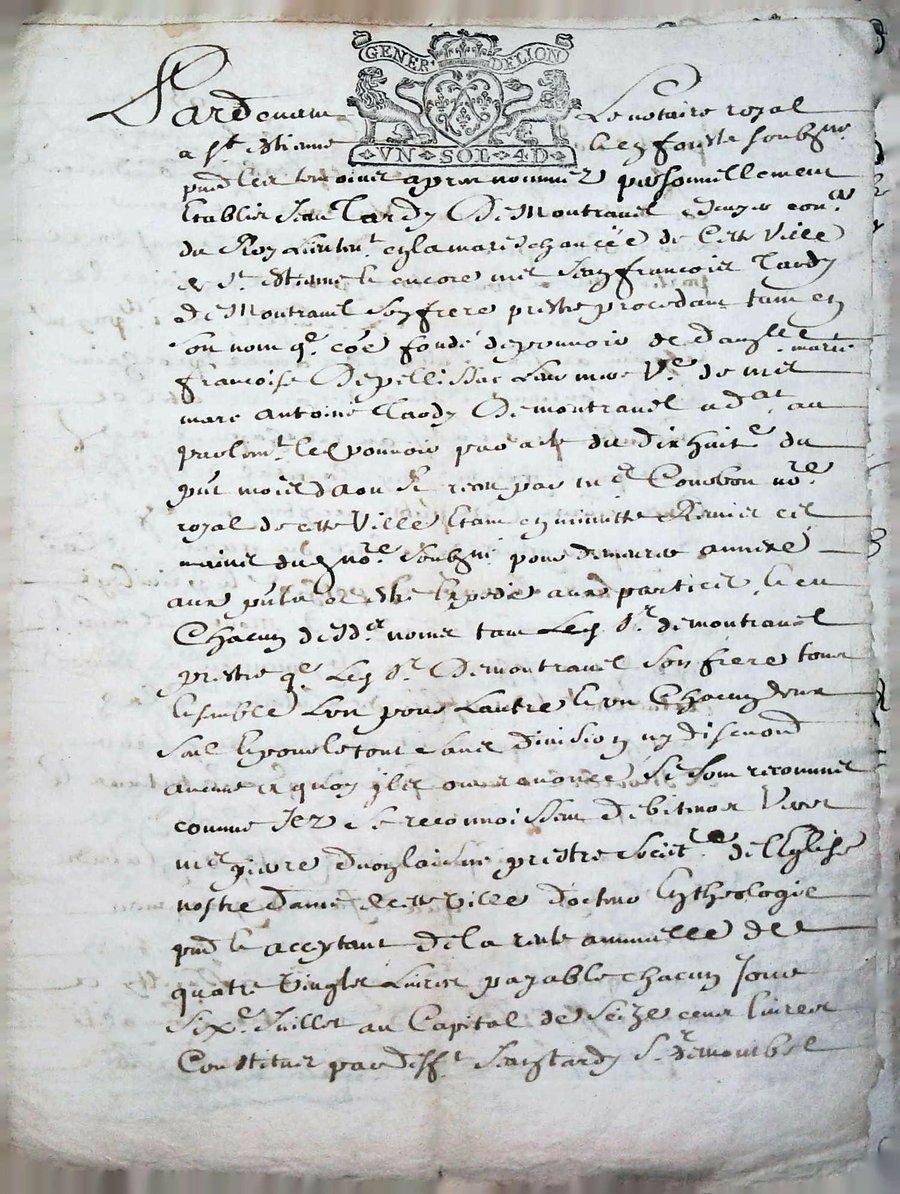 GENER DELION
VN SOL 4D
Pardevant Le notaire royal
a St Estienne en forests soubzne
pnt les tesmoins apres nommez personnellement
Establis Jean Tardy De Montravel Escuyer conr
du Roy Lieutnt en la mareschaucée de Cette Ville
de St Estienne et encore mre Jean francois Tardy
de Montravel son frere prestre procedant tant en
son nom qe coe fondé de pouvoir de
francoise De pellissac Leur mere Ve de mre
marc antoine Tardy De montravel adat au
parlemt led pouvoir par acte du dix huite du
pnt mois daoust receu par me Courbon nore
royal de cette Ville en minutte Remise es
mains dud nore soubzne pour demeurer annexé
aux pntes et estre Expedié aux parties le en
Chacun desdts noms tant Led Sr demontravel
prestre qe Led Sr Demontravel son frere tous
Ensemble Lun pour Lautre et un Chacun deux
seul et pour le tout sans division ny discution
aucune a quoy ils ont renoncé se sont reconnus
comme Ilz se reconnoissent Debiteurs Vers
mre pierre prestre Societre de l'Eglise
nostre Dame de cette Ville docteur en theologie
pnt et acceptant de la rente annuelle de
quatre Vingts Livres payable chacun Jour
sixe Juillet au Capital de seize cent livres
Constituée par defft Jean tardy Sr de